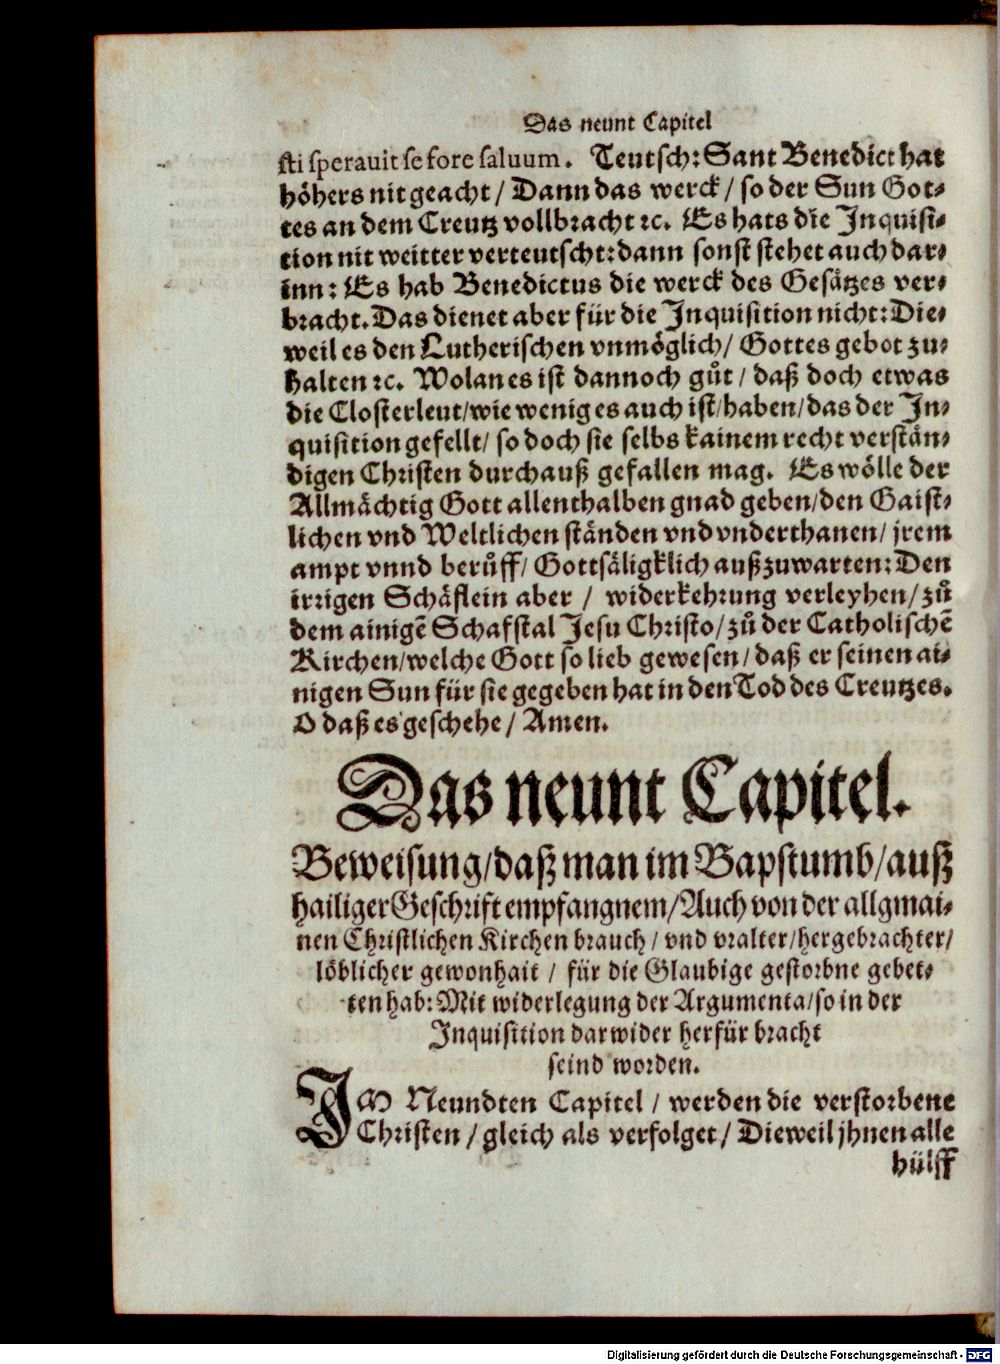 Das neunt Capitel
sti sperauit se fore saluum. Teutsch: Sant Benedict hat
höhers nit geacht / Dann das werck / so der Sun Got-
tes an dem Creutz vollbracht ꝛc. Es hats die Inquisi-
tion nit weitter verteutscht: dann sonst stehet auch dar-
inn: Es hab Benedictus die werck des Gesätzes ver-
bracht. Das dienet aber für die Inquisition nicht: Die-
weil es den Lutherischen vnmöglich / Gottes gebot zu-
halten ꝛc. Wolan es ist dannoch gůt / daß doch etwas
die Closterleut / wie wenig es auch ist / haben / das der In-
quisition gefellt / so doch sie selbs kainem recht verstän-
digen Christen durchauß gefallen mag. Es wölle der
Allmächtig Gott allenthalben gnad geben / den Gaist-
lichen vnd Weltlichen ständen vnd vnderthanen / jrem
ampt vnnd berůff / Gottsäligklich außzuwarten: Den
irrigen Schäflein aber / widerkehrung verleyhen / zů
dem ainigẽ Schafstal Jesu Christo / zů der Catholischẽ
Kirchen / welche Gott so lieb gewesen / daß er seinen ai-
nigen Sun für sie gegeben hat in den Tod des Creutzes.
O daß es geschehe / Amen.
Das neunt Capitel.
Beweisung / daß man im Bapstumb / auß
hailiger Geschrift empfangnem / Auch von der allgmai-
nen Christlichen Kirchen brauch / vnd vralter / hergebrachter /
löblicher gewonhait / für die Glaubige gestorbne gebet-
ten hab: Mit widerlegung der Argumenta / so in der
Inquisition darwider herfür bracht
seind worden.
IM Neundten Capitel / werden die verstorbene
Christen / gleich als verfolget / Dieweil jhnen alle
hülff
Digitalisierung gefördert durch die Deutsche Forschungsgemeinschaft - DFG